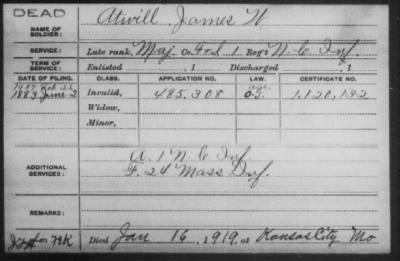 DEAD
NAME OF SOLDIER: Atwill, James W.
SERVICE: Late rank, Maj. Co. F&S 1 Reg't N. C. Inf.
TERM OF SERVICE: Enlisted , 1 Discharged , 1
DATE OF FILING. CLASS. APPLICATION NO. LAW. CERTIFICATE NO.
1907 Feb 26 age
1883 June 2 Invalid, 485,308 O.S. 1,120,192
Widow,
Minor,
ADDITIONAL SERVICES: A. 1 N C Inf.
F. 24 Mass Inf.
REMARKS:
Died Jan 16, 1919, at Kansas City Mo